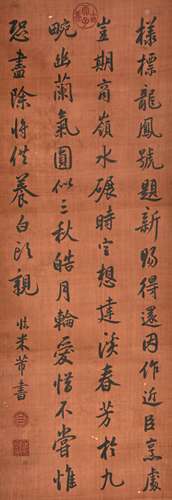 樣標龍鳳號題新賜得還因作近臣享處
豈期商嶺水碾時空想建溪春芳於九
畹幽蘭氣圓似三秋皓月輪愛惜不嘗惟
恐盡除將供養白頭親
臨米芾書